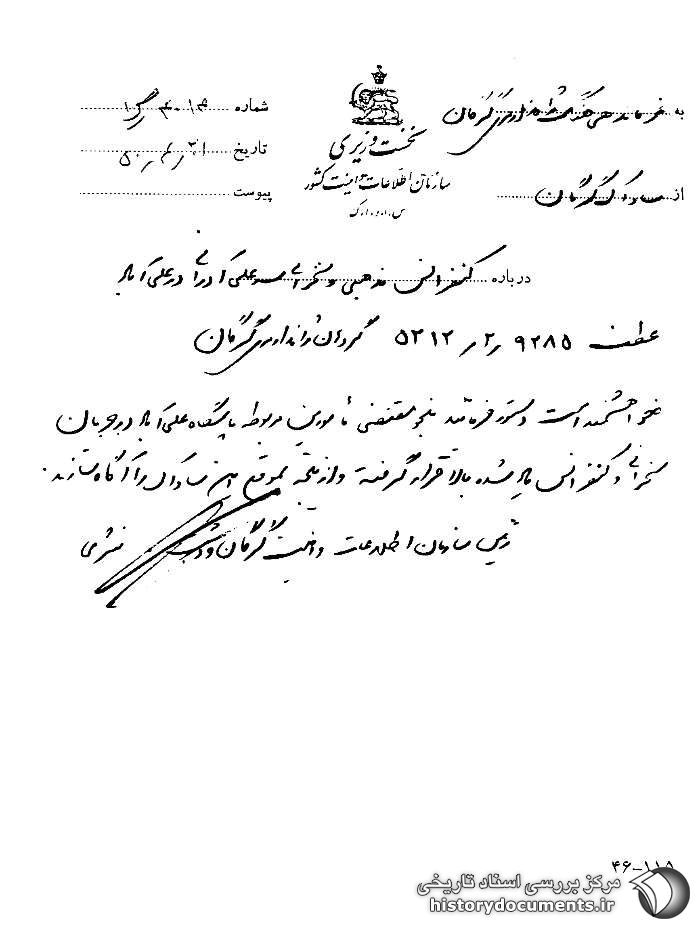 به فرماندهی هنگ ژاندارمری گرگان
شماره ۴۰۱۵
نخست وزیری
تاریخ ۵۰/۴/۳۱
سازمان اطلاعات و امنیت کشور
از ساواک گرگان
پیوست
س.ا.و.ا.ک
درباره کنفرانس مذهبی و سخرانی در علی آباد
عطف ۹۲۸۵/۲ـ ۵۲۱۲ گردان ژاندارمری گرگان
خواهشمند است دستور فرمائید بنحو مقتضی مامورین مربوطه پاسگاه علی آباد در جریان
سخنرانی و کنفرانس یاد شده بالا قرار گرفته و از نتیجه بموقع این ساواک را آگاه سازند.
رئیس سازمان اطلاعات و امنیت گرگان و دشت
۴۶-۱۱۸
مرکز بررسی اسناد تاریخی
historydocuments.ir